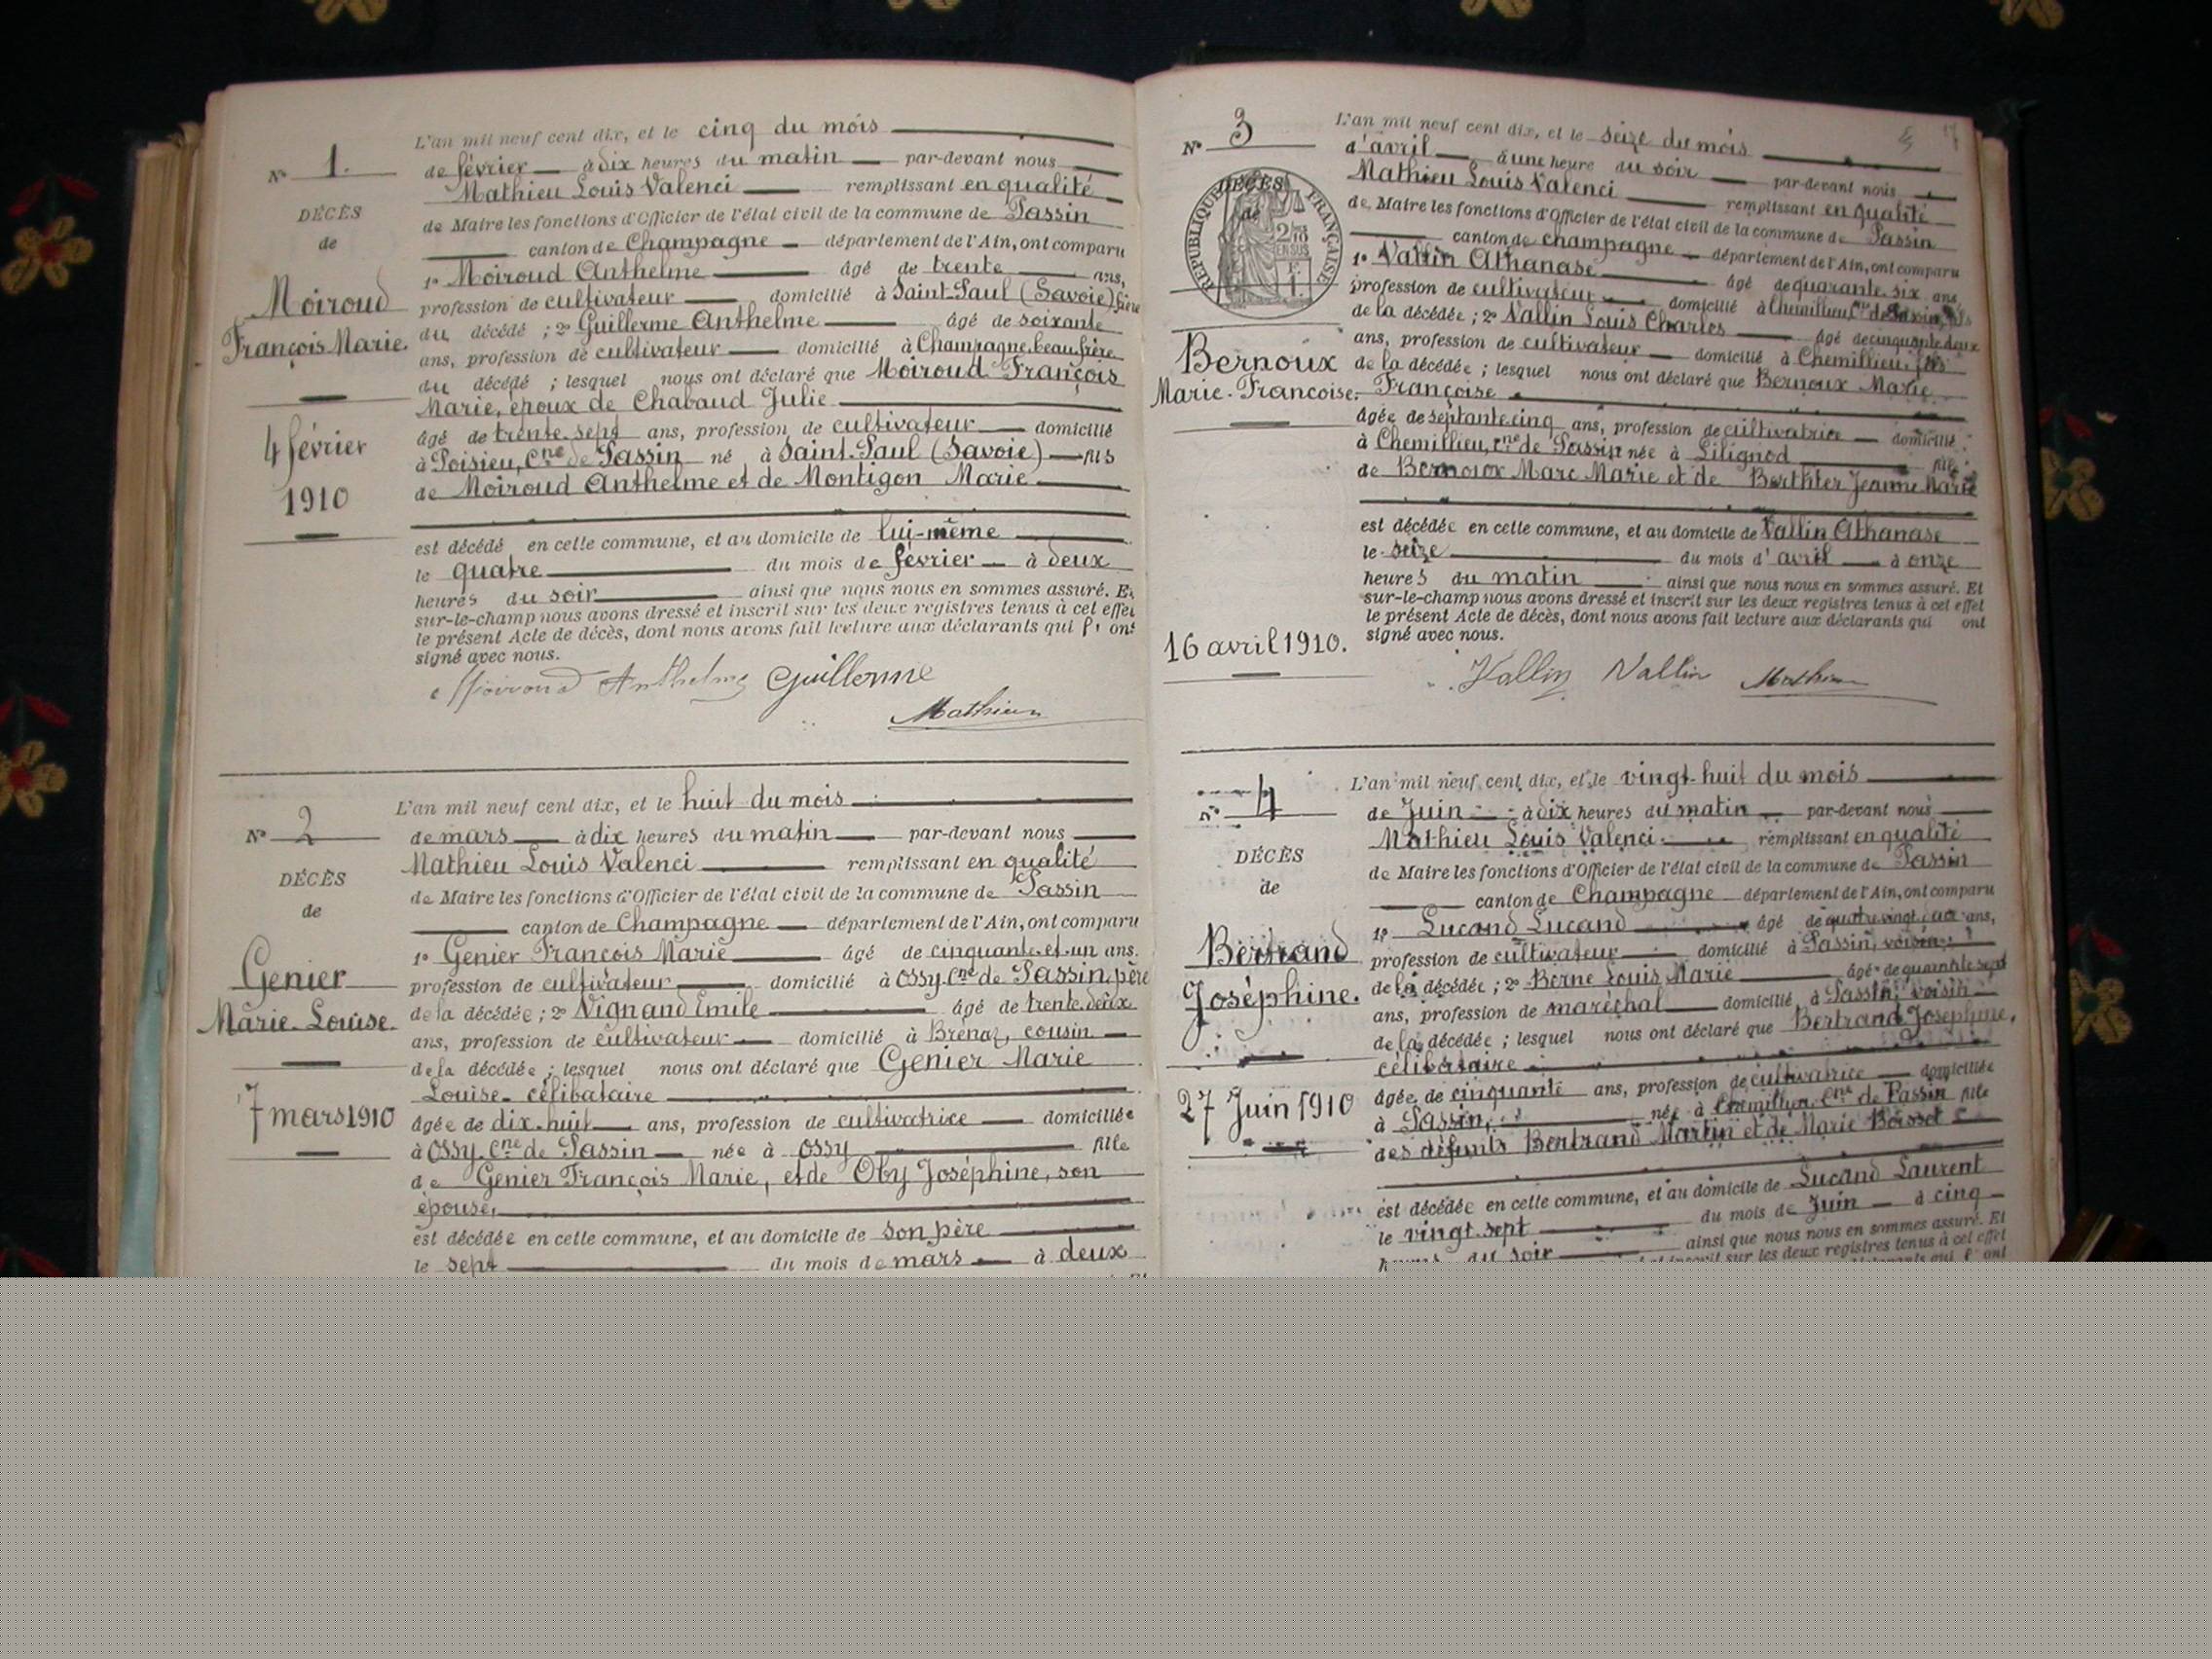 L'an mil neuf cent dix, et le cinq du mois
Nº 1.
de février à dix heures du matin par-devant nous
Mathieu Louis Valenci remplissant en qualité
DÉCÈS
de Maire les fonctions d'Officier de l'état civil de la commune de Passin
de
canton de Champagne département de l'Ain, ont comparu
1º Moiroud Anthelme âgé de trente ans,
Moiroud
profession de cultivateur domicilié à Saint-Paul (Savoie) frère
François Marie.
du décédé ; 2º Guillerme Anthelme âgé de soixante
ans, profession de cultivateur domicilié à Champagne, beau frère
du décédé ; lesquel nous ont déclaré que Moiroud François
Marie, époux de Chabaud Julie
4 février
1910
âgé de trente-sept ans, profession de cultivateur domicilié
à Poisieu, Cne de Passin né à Saint-Paul (Savoie) fils
de Moiroud Anthelme et de Montigon Marie
est décédé en cette commune, et au domicile de lui-même
le quatre du mois de février à deux
heures du soir ainsi que nous nous en sommes assuré. Et
sur-le-champ nous avons dressé et inscrit sur les deux registres tenus à cet effet
le présent Acte de décès, dont nous avons fait lecture aux déclarants qui ont
signé avec nous.
Moiroud Anthelme Guillerme
Mathieu
L'an mil neuf cent dix, et le huit du mois
Nº 2
de mars à dix heures du matin par-devant nous
Mathieu Louis Valenci remplissant en qualité
DÉCÈS
de Maire les fonctions d'Officier de l'état civil de la commune de Passin
de
canton de Champagne département de l'Ain, ont comparu
1º Genier François Marie âgé de cinquante-et-un ans.
Genier
profession de cultivateur domicilié à Ossy Cne de Passin, père
Marie-Louise.
de la décédée ; 2º Vignand Emile âgé de trente-deux
ans, profession de cultivateur domicilié à Brénaz, cousin
de la décédée ; lesquel nous ont déclaré que Genier Marie
Louise célibataire
7 mars 1910
âgée de dix-huit ans, profession de cultivatrice domiciliée
à Ossy, Cne de Passin née à Ossy fille
de Genier François Marie, et de Oby Joséphine, son
épouse,
est décédée en cette commune, et au domicile de son père
le sept du mois de mars à deux
L'an mil neuf cent dix, et le seize du mois
Nº 3
d'avril à une heure du soir par-devant nous
Mathieu Louis Valenci remplissant en qualité
DÉCÈS
de
RÉPUBLIQUE FRANÇAISE
de Maire les fonctions d'Officier de l'état civil de la commune de Passin
canton de Champagne département de l'Ain, ont comparu
1º Vallin Athanase âgé de quarante-six ans
profession de cultivateur domicilié à Chemillieu, Cne de Passin,
de la décédée ; 2º Vallin Louis Charles âgé de cinquante deux
ans, profession de cultivateur domicilié à Chemillieu, fils
Bernoux
de la décédée ; lesquel nous ont déclaré que Bernoux Marie
Marie-Francoise.
Françoise
âgée de septante cinq ans, profession de cultivatrice domicilié
à Chemillieu, Cne de Passin née à Lilignod fille
de Bernoux Marc Marie et de Berthier Jeanne Marie
est décédée en cette commune, et au domicile de Vallin Athanase
le seize du mois d'avril à onze
heures du matin ainsi que nous nous en sommes assuré. Et
sur-le-champ nous avons dressé et inscrit sur les deux registres tenus à cet effet
le présent Acte de décès, dont nous avons fait lecture aux déclarants qui ont
signé avec nous.
16 avril 1910.
Vallin Vallin Mathieu
L'an mil neuf cent dix, et le vingt-huit du mois
Nº 4
de Juin à dix heures du matin par-devant nous
Mathieu Louis Valenci remplissant en qualité
DÉCÈS
de Maire les fonctions d'Officier de l'état civil de la commune de Passin
de
canton de Champagne département de l'Ain, ont comparu
1º Lucand Lucand âgé de quatre vingt ans,
Bertrand
profession de cultivateur domicilié à Passin, voisin
Joséphine.
de la décédée ; 2º Berne Louis Marie âgé de quarante sept
ans, profession de maréchal domicilié à Passin, voisin
de la décédée ; lesquel nous ont déclaré que Bertrand Joséphine,
célibataire
27 Juin 1910
âgée de cinquante ans, profession de cultivatrice domiciliée
à Passin, née à Chemillieu Cne de Passin fille
des défunts Bertrand Martin et de Marie Boisset
est décédée en cette commune, et au domicile de Lucand Laurent
le vingt-sept du mois de Juin à cinq
heures du soir ainsi que nous nous en sommes assuré. Et